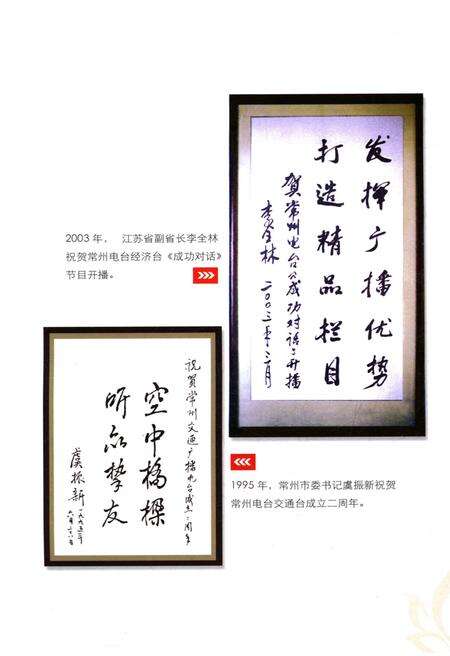 发挥广播优势
打造精品栏目
贺常州电台《成功对话》开播
李全林 二〇〇三年三月
2003 年， 江苏省副省长李全林
祝贺常州电台经济台《成功对话》
节目开播。
祝贺常州交通广播电台成立二周年
空中桥梁
听众挚友
虞振新 一九九五年
六月二十八日
1995 年，常州市委书记虞振新祝贺
常州电台交通台成立二周年。